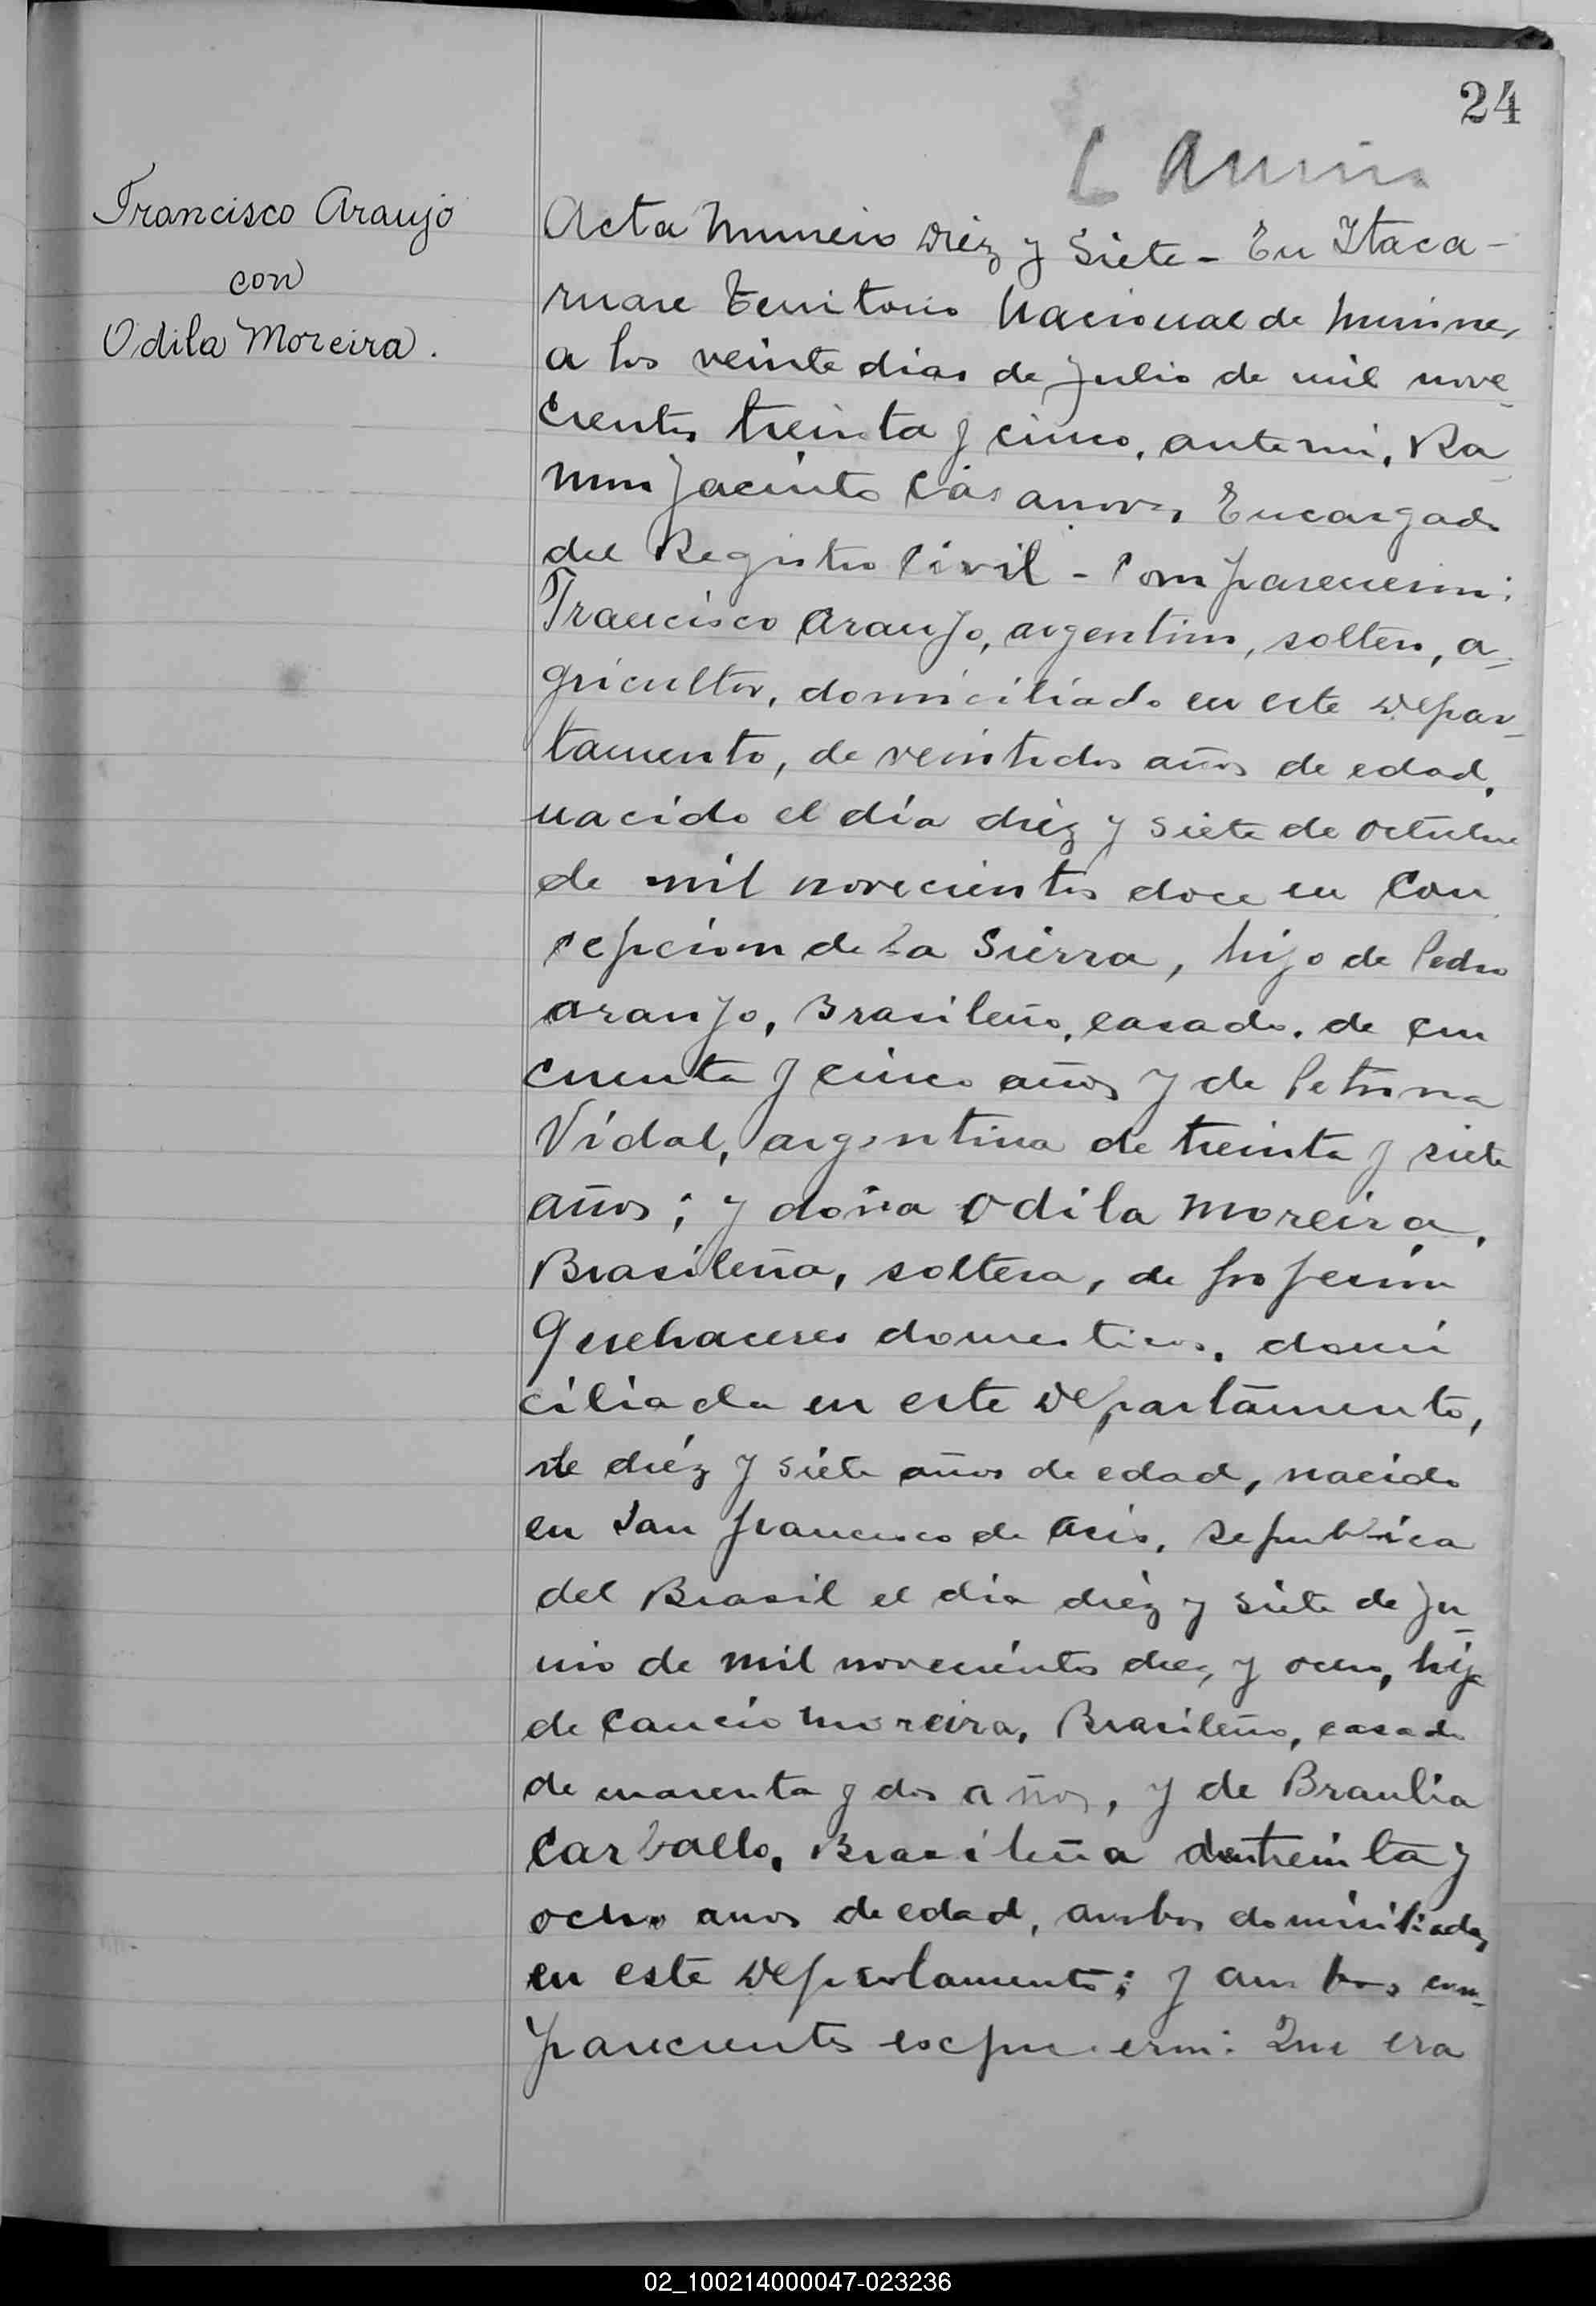 24
Francisco Araujo
con
Odila Moreira.
Acta Numero Diéz y Siete - En Itaca-
ruare Territorio Nacional de Misiones,
a los veinte dias de Julio de mil nove-
cientos treinta y cinco, ante mi, Ra-
mon Jacinto Casanova, Encargado
del Registro Civil - Comparecieron:
Francisco Araujo, argentino, soltero, a-
gricultor, domiciliado en este Depar-
tamento, de veintidos años de edad,
nacido el día diéz y siete de octubre
de mil novecientos doce en Con
cepcion de La Sierra, hijo de Pedro
Araujo, Brasileño, casado, de cin
cuenta y cinco años y de Petrona
Vidal, argentina de treinta y siete
años; y doña Odila Moreira,
Brasileña, soltera, de profesion
Quehaceres domesticos, domi
ciliada en este Departamento,
de diéz y siete años de edad, nacido
en San Francisco de Asis, Republica
del Brasil el dia diéz y siete de Ju-
nio de mil novecientos diez y ocho, hija
de Cancio Moreira, Brasileño, casado
de cuarenta y dos años, y de Braulia
Carballo, Brasileña de treinta y
ocho anos de edad, ambos domiciliados
en este Departamento; y ambos com-
parecientes expusieron: Que era
02_100214000047-023236